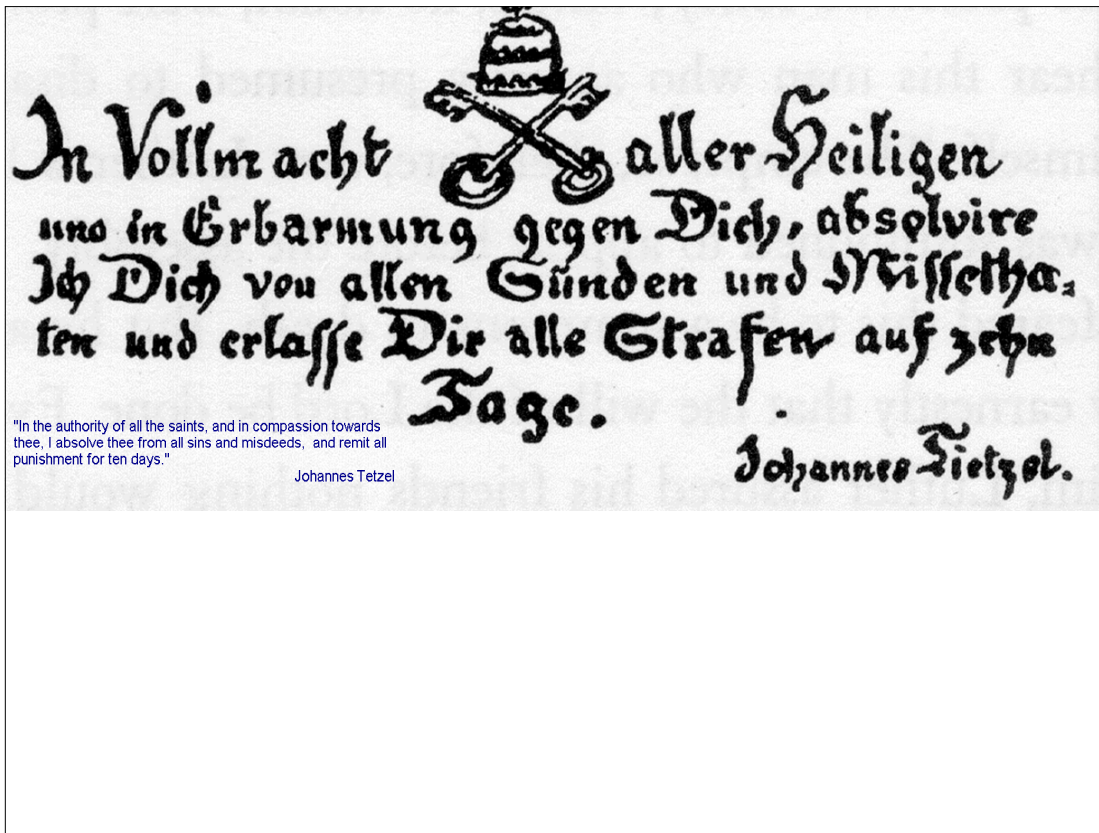 In Vollmacht aller Heiligen
und in Erbarmung gegen Dich, absolvire
Ich Dich von allen Sünden und Missetha=
ten und erlasse Dir alle Strafen auf zehn
Tage.
Johannes Tietzel.
"In the authority of all the saints, and in compassion towards
thee, I absolve thee from all sins and misdeeds, and remit all
punishment for ten days."
Johannes Tetzel